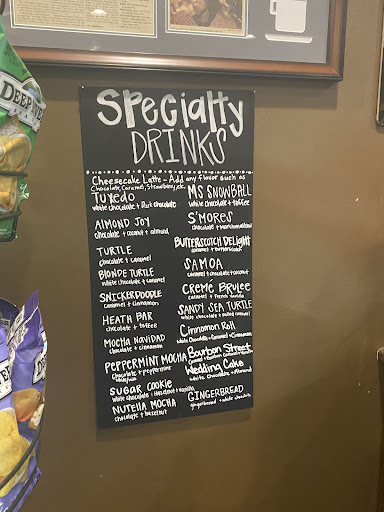 SPECIALTY
DRINKS
Cheesecake Latte - Add any flavor such as
Chocolate, Caramel, Strawberry, etc.
TUXEDO
white chocolate + Dark chocolate
ALMOND JOY
chocolate + coconut + almond
TURTLE
chocolate + caramel
BLONDE TURTLE
white chocolate + caramel
SNICKERDOODLE
caramel + cinnamon
HEATH BAR
chocolate + toffee
MOCHA NAVIDAD
chocolate + cinnamon
PEPPERMINT MOCHA
chocolate + peppermint
SUGAR COOKIE
white chocolate + Hazelnut + vanilla
NUTELLA MOCHA
chocolate + hazelnut
MS SNOWBALL
white chocolate + toffee
S'MORES
chocolate + marshmallow
BUTTERSCOTCH DELIGHT
caramel + butterscotch
SAMOA
caramel + chocolate + coconut
CREME BRULEE
caramel + french vanilla
SANDY SEA TURTLE
white chocolate + salted caramel
Cinnamon Roll
White Chocolate + Caramel + Cinnamon
Bourbon Street
Caramel + Bourbon Caramel +
Wedding Cake
white chocolate + Almond
GINGERBREAD
gingerbread + white chocolate